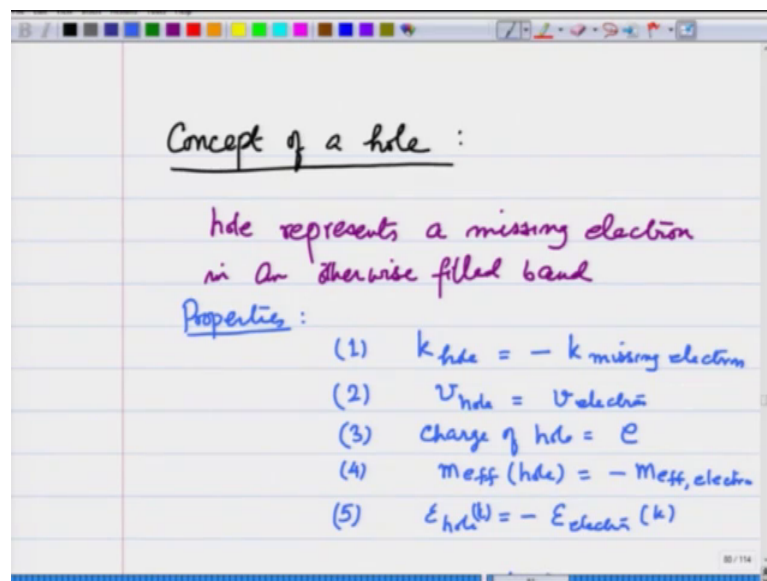 Concept of a hole :
hole represents a missing electron
in an otherwise filled band
Properties :
(1) k hole = - k missing electron
(2) v hole = v electron
(3) charge of hole = e
(4) meff (hole) = - meff, electron
(5) ε hole (k) = - ε electron (k)
80 / 114